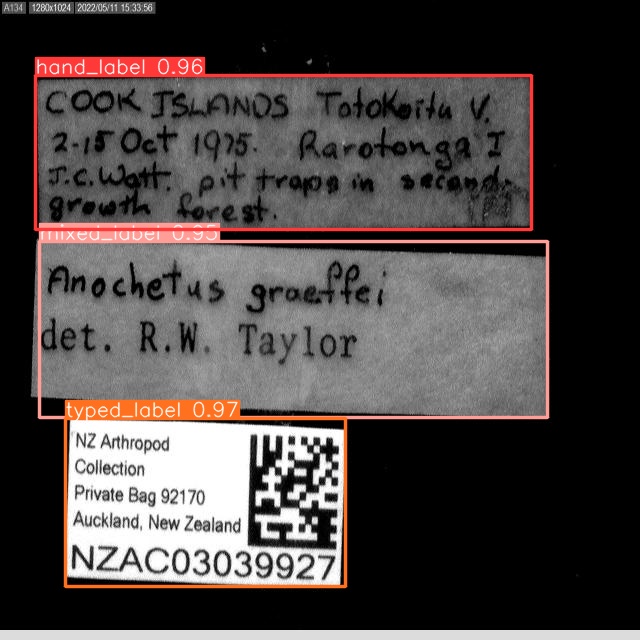 A134 1280x1024 2022/05/11 15:33:56
hand_label 0.96
COOK ISLANDS Totokoitu V.
2-15 Oct 1975. Rarotonga I
J.C. Watt. pit traps in second
growth forest.
mixed_label 0.95
Anochetus graeffei
det. R.W. Taylor
typed_label 0.97
NZ Arthropod
Collection
Private Bag 92170
Auckland, New Zealand
NZAC03039927